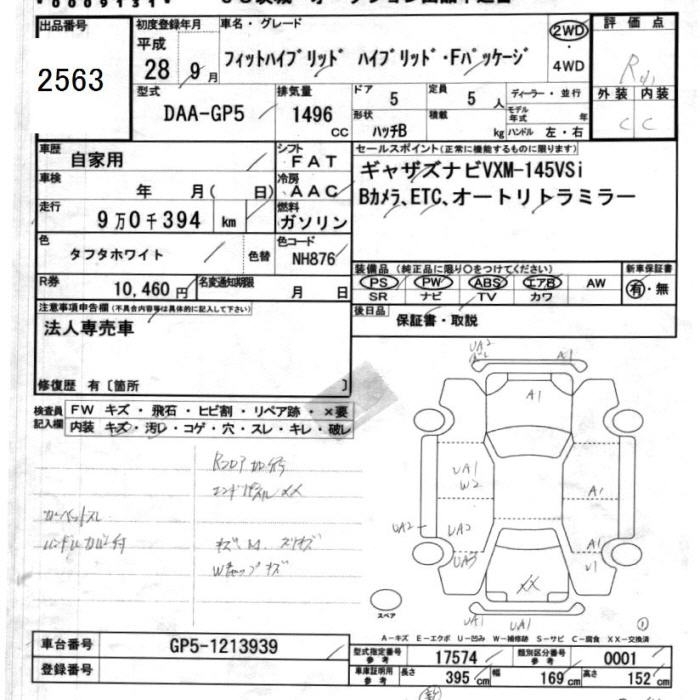 出品番号 初度登録年月 車名・グレード 評価点
2563
平成 28年 9月
フィットハイブリッド ハイブリッド・Fパッケージ
2WD・4WD
R
型式 排気量 ドア 定員 ディーラー・並行 外装 内装
DAA-GP5 1496cc 5 5人
モデル年式 年
C C
形状 積載
ハッチB kg ハンドル 左・右
車歴 自家用 シフト FAT セールスポイント(正常に機能するものに限ります)
車検 年 月( 日) 冷房 AAC ギャザズナビVXM-145VSi
走行 9万0千394 km 燃料 ガソリン Bカメラ、ETC、オートリトラミラー
色 タフタホワイト 色替 色コード NH876
装備品(純正品に限り○をつけてください) 新車保証書
PS PW ABS エアB AW 有・無
SR ナビ TV カワ
R券 10,460円 名変通知期限 月 日
後日品 保証書・取説
注意事項申告欄(不具合内容等は具体的に記入して下さい)
法人専売車
修復歴 有〔箇所 〕
検査員記入欄 FW キズ・飛石・ヒビ割・リペア跡・×要
内装 キズ・汚レ・コゲ・穴・スレ・キレ・破レ
UA2
A1
A1
UA1
W2
A1
UA2
UA2
A1
UA3
XX
UA1 UA1
スペア
①
A-キズ E-エクボ U-凹み W-補修跡 S-サビ C-腐食 XX-交換済
車台番号 GP5-1213939
登録番号
型式指定番号 参考 17574 類別区分番号 参考 0001
車庫証明用 参考 長さ 395cm 幅 169cm 高さ 152cm